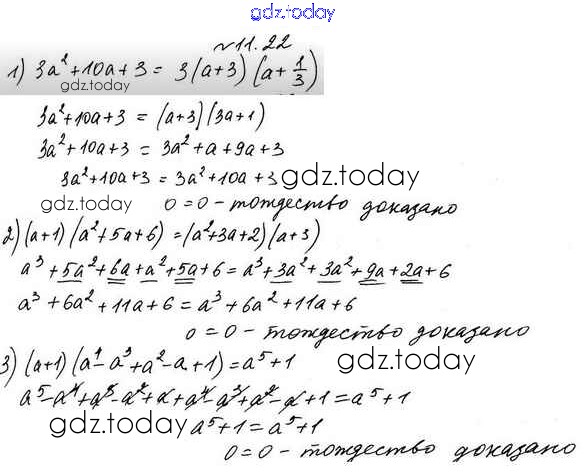 gdz.today
№11.22
1) 3a²+10a+3 = 3(a+3)(a+1/3)
gdz.today
3a²+10a+3 = (a+3)(3a+1)
3a²+10a+3 = 3a²+a+9a+3
3a²+10a+3 = 3a²+10a+3 gdz.today
gdz.today 0=0 - тождество доказано
2) (a+1)(a²+5a+6)=(a²+3a+2)(a+3)
a³+5a²+6a+a²+5a+6=a³+3a²+3a²+9a+2a+6
a³+6a²+11a+6=a³+6a²+11a+6
0=0 - тождество доказано
3) (a+1)(a⁴-a³+a²-a+1)=a⁵+1 gdz.today
a⁵-a⁴+a³-a²+a+a⁴-a³+a²-a+1=a⁵+1
gdz.today a⁵+1=a⁵+1
0=0 - тождество доказано